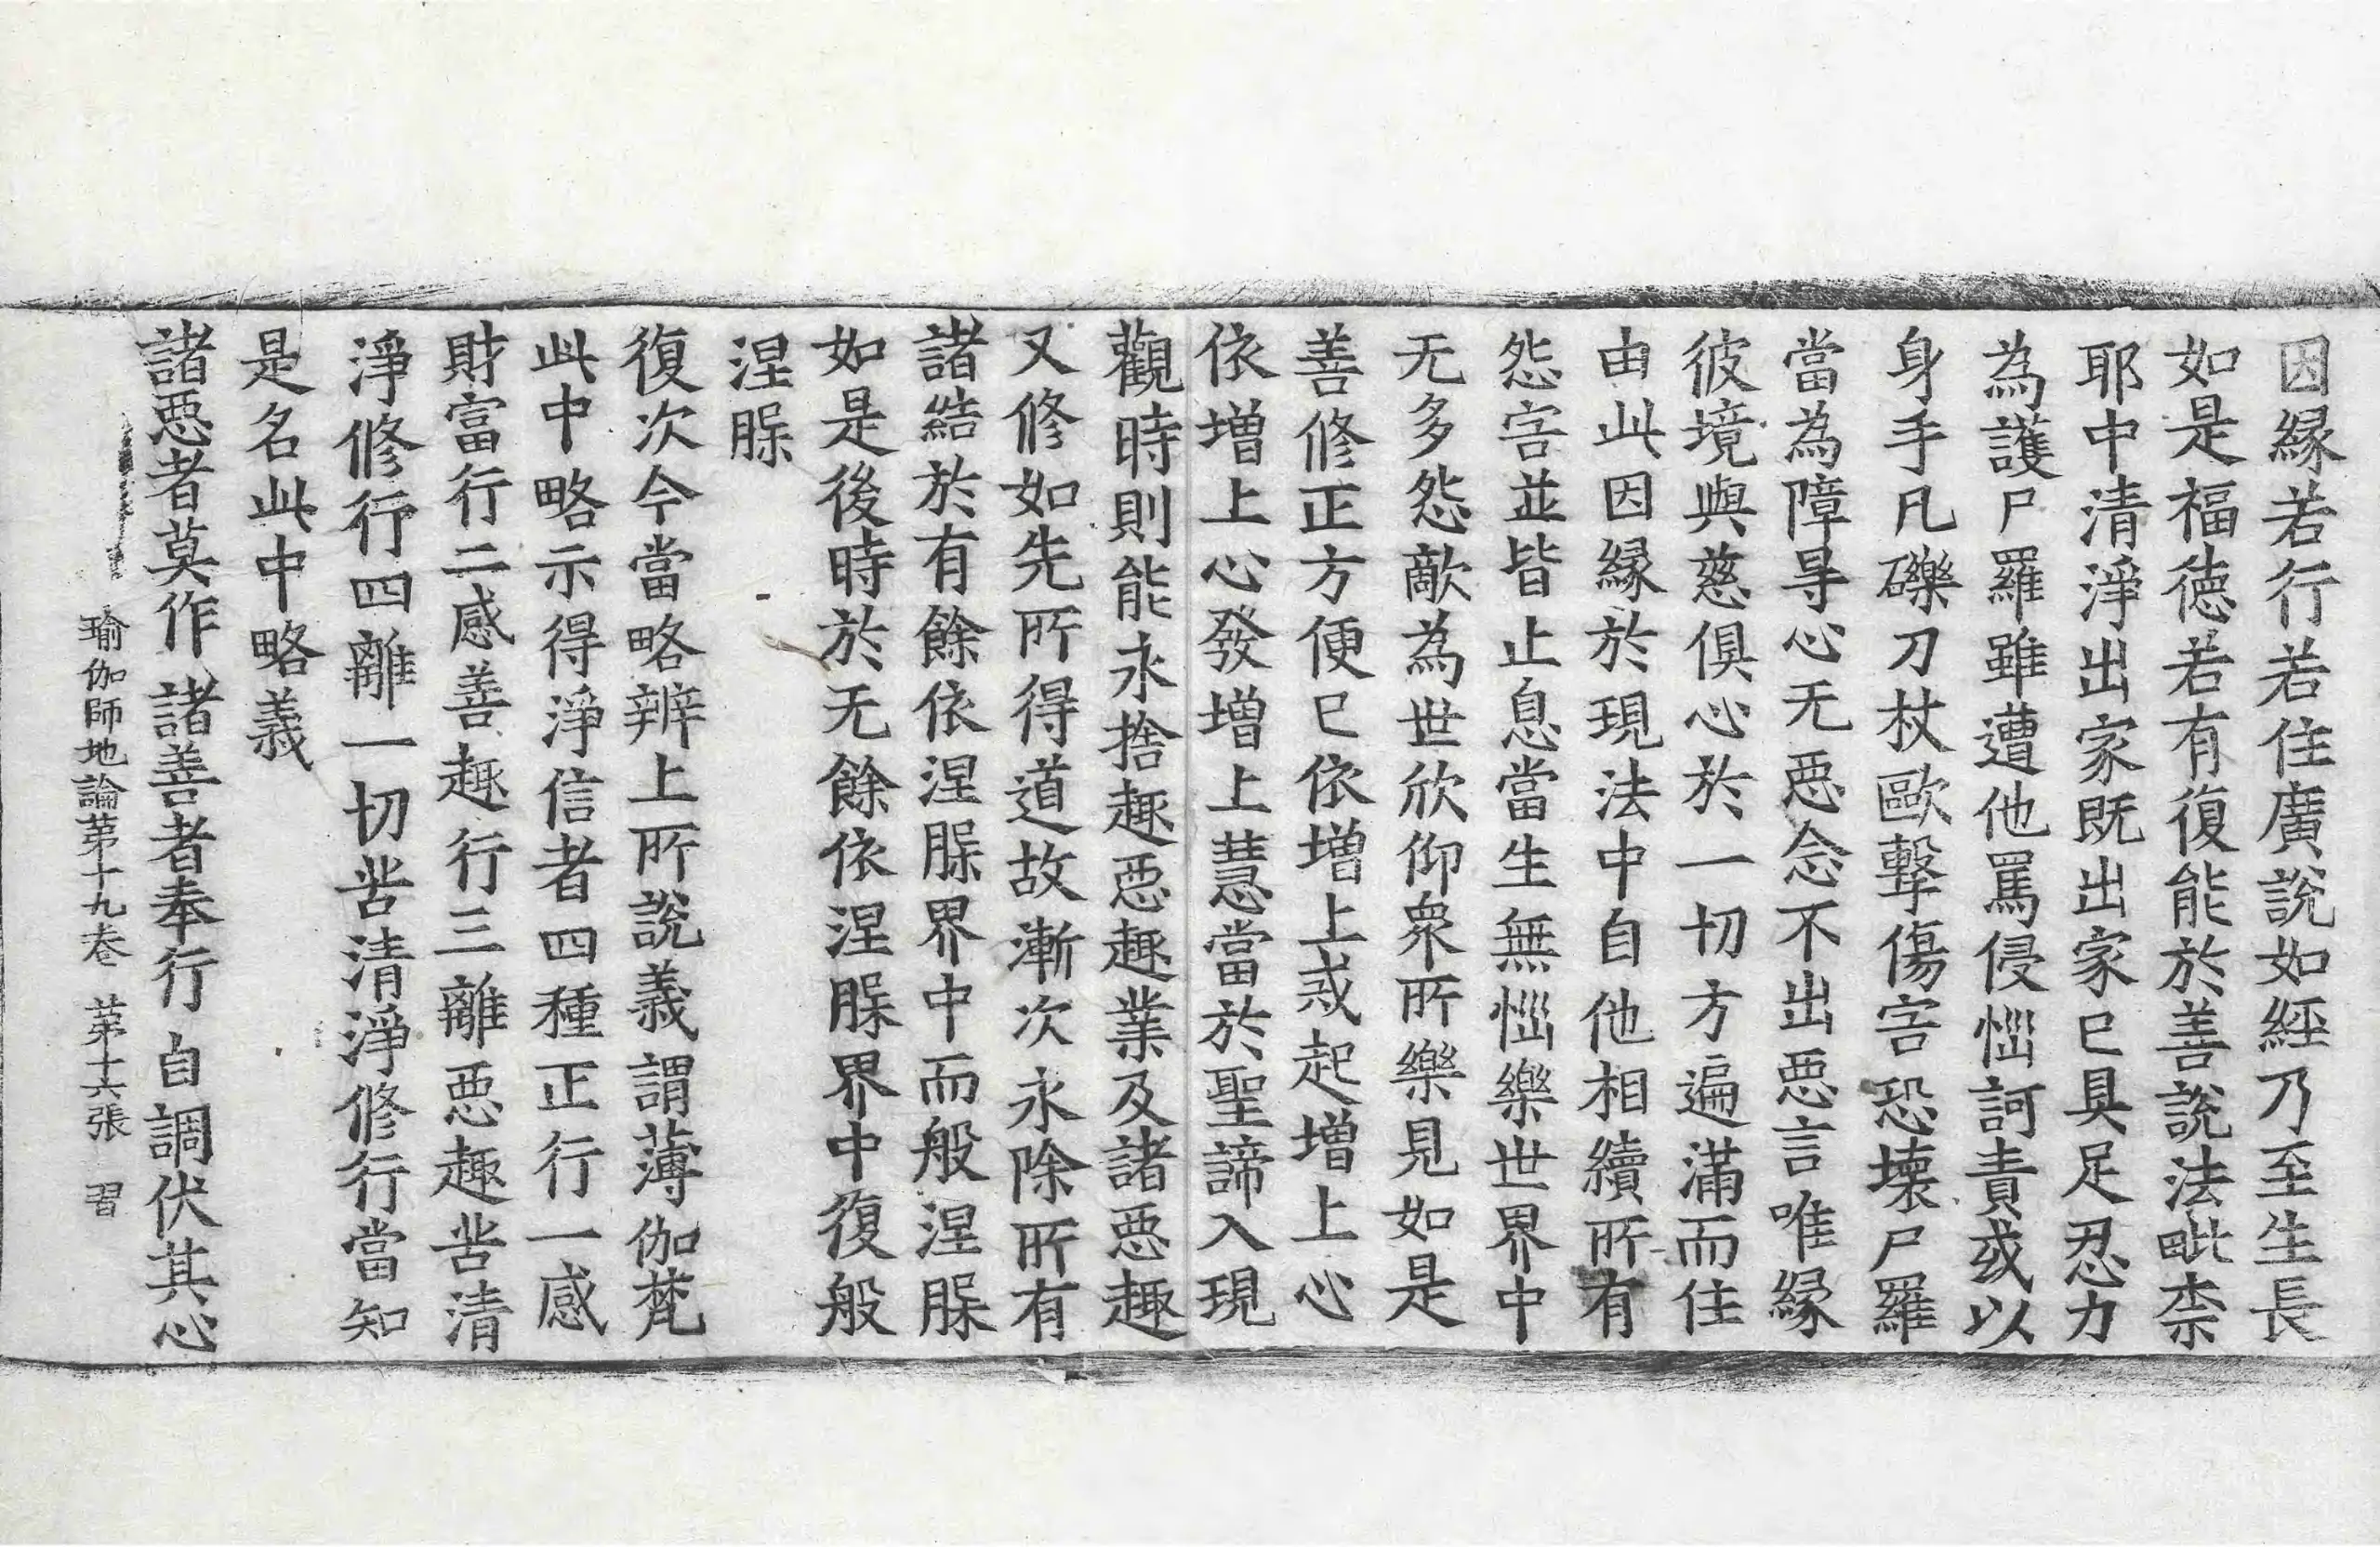 因縁若行若住廣說如經乃至生長
如是福德若有復能於善說法毗柰
耶中清淨出家既出家已具足忍力
為護尸羅雖遭他罵侵惱訶責或以
身手凡礫刀杖歐擊傷害恐壞尸羅
當為障㝵心无惡念不出惡言唯緣
彼境與慈俱心於一切方遍滿而住
由此因縁於現法中自他相續所有
怨害並皆止息當生無惱樂世界中
无多怨敵為世欣仰衆所樂見如是
善修正方便已依增上戒起增上心
依增上心發增上慧當於聖諦入現
觀時則能永捨趣惡趣業及諸惡趣
又修如先所得道故漸次永除所有
諸結於有餘依涅槃界中而般涅槃
如是後時於无餘依涅槃界中復般
涅槃
復次今當略辨上所說義謂薄伽梵
此中略示得淨信者四種正行一感
財富行二感善趣行三離惡趣苦清
淨修行四離一切苦清淨修行當知
是名此中略義
諸惡者莫作 諸善者奉行 自調伏其心
瑜伽師地論苐十九卷 苐十六張 習